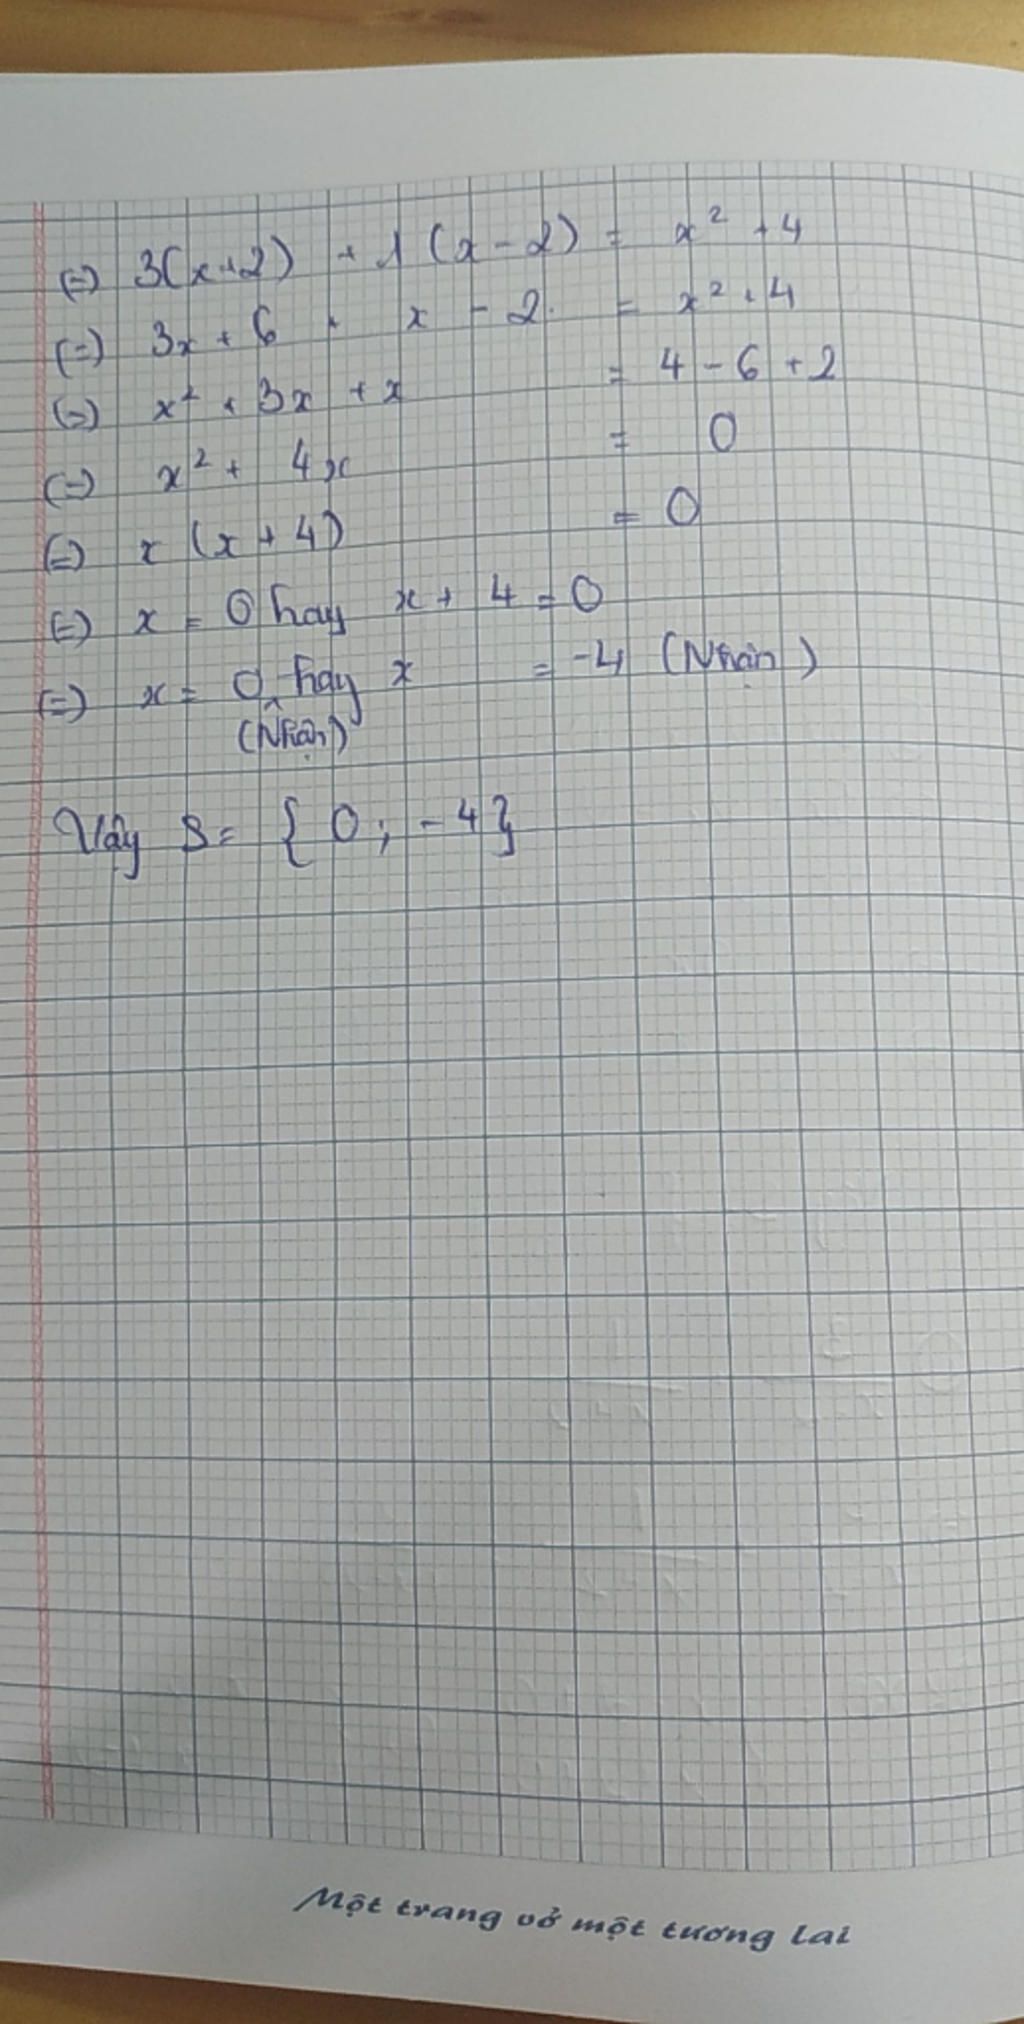 (=) 3(x+2) + 1(x-2) = x² + 4
(=) 3x + 6 + x - 2 = x² + 4
(=) x² + 3x + x = 4 - 6 + 2
(=) x² + 4x = 0
(=) x (x + 4) = 0
(=) x = 0 hay x + 4 = 0
(=) x = 0 hay x = -4 (Nhận)
(Nhận)
Vậy S = { 0 ; -4 }
Một trang vở một tương lai